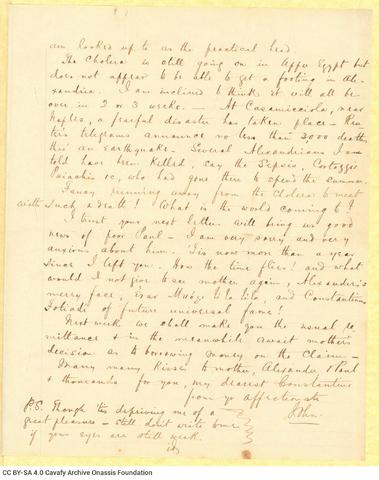 am looked up to as the practical head.
The Cholera is still going on in Upper Egypt but
does not appear to be able to get a footing in Ale-
xandria. I am inclined to think it will all be
over in 2 or 3 weeks. — At Casamicciola, near
Naples, a fearful disaster has taken place — Reu-
ter's telegrams announce no less than 3,000 deaths
thro' an earthquake — Several Alexandrians I am
told have been killed, say the
&c, who had gone there to spend the summer.
Fancy running away from the cholera to meet
with such a death! What is the world coming to!
I trust your next letter will bring us good
news of poor Paul — I am very sorry and very
anxious about him. 'Tis now more than a year
since I left you. How the time flies! and what
would I not give to see mother again, Alexander's
merry face, and Constantine
of future universal fame!
Next week we shall make you the usual re
mittance & in the meanwhile await mother's
decision as to borrowing money on the Claim —
Many many kisses to mother, Alexander & Paul
& thousands for you, my dearest Constantine
from yr affectionate
John
P.S. Though tis depriving me of a
great pleasure — still don't write to me
if your eyes are still weak.
CC BY-SA 4.0 Cavafy Archive Onassis Foundation